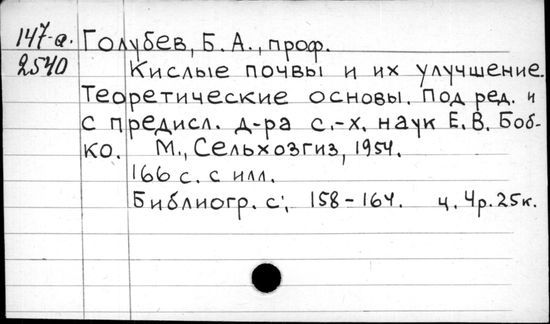 147-а. Голубев, Б. А., проф.
2540 Кислые почвы и их улучшение.
Теоретические основы. Под ред. и
с предисл. д-ра с.-х. наук Е. В. Боб-
ко. М., Сельхозгиз, 1954.
166 с. с илл.
Библиогр. с. 158-164. ц. 4р. 25к.